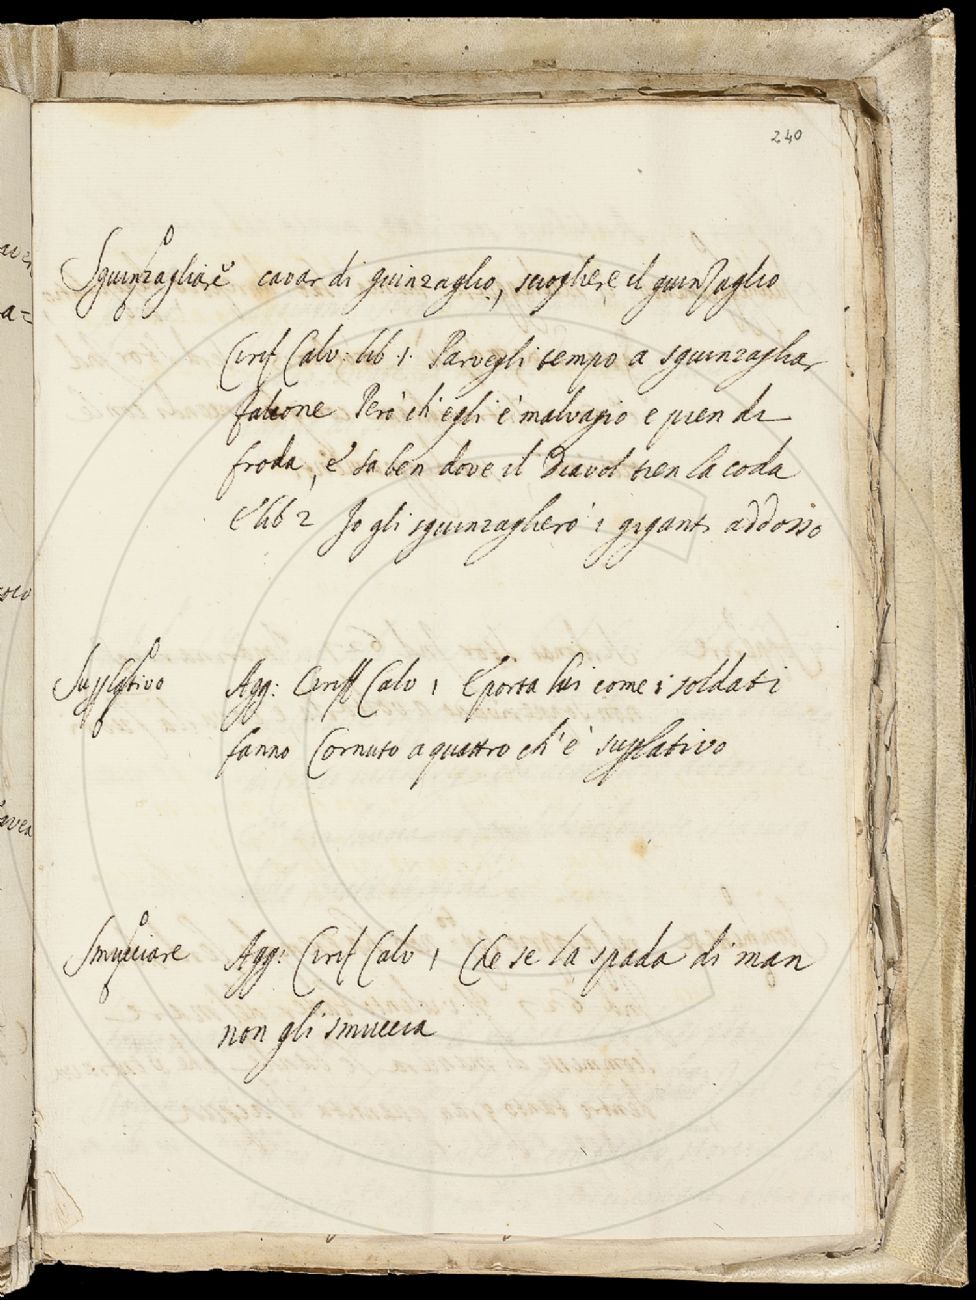 240
Sguinzagliare cavar di guinzaglio, sciogliere il guinzaglio
Cirif Calv: lib 1. Parvegli tempo a sguinzagliar
falcone Però ch'egli è malvagio e pien di
froda, e sa ben dove il Diavol tien la coda
E lib 2 Io gli sguinzaglierò i giganti addosso
Supplativo Agg: Ciriff Calv 1 E porta lui come i soldati
fanno Cornuto a quattro ch'è supplativo
Smucciare Agg: Cirif Calv 1 Che se la spada di man
non gli smuccia